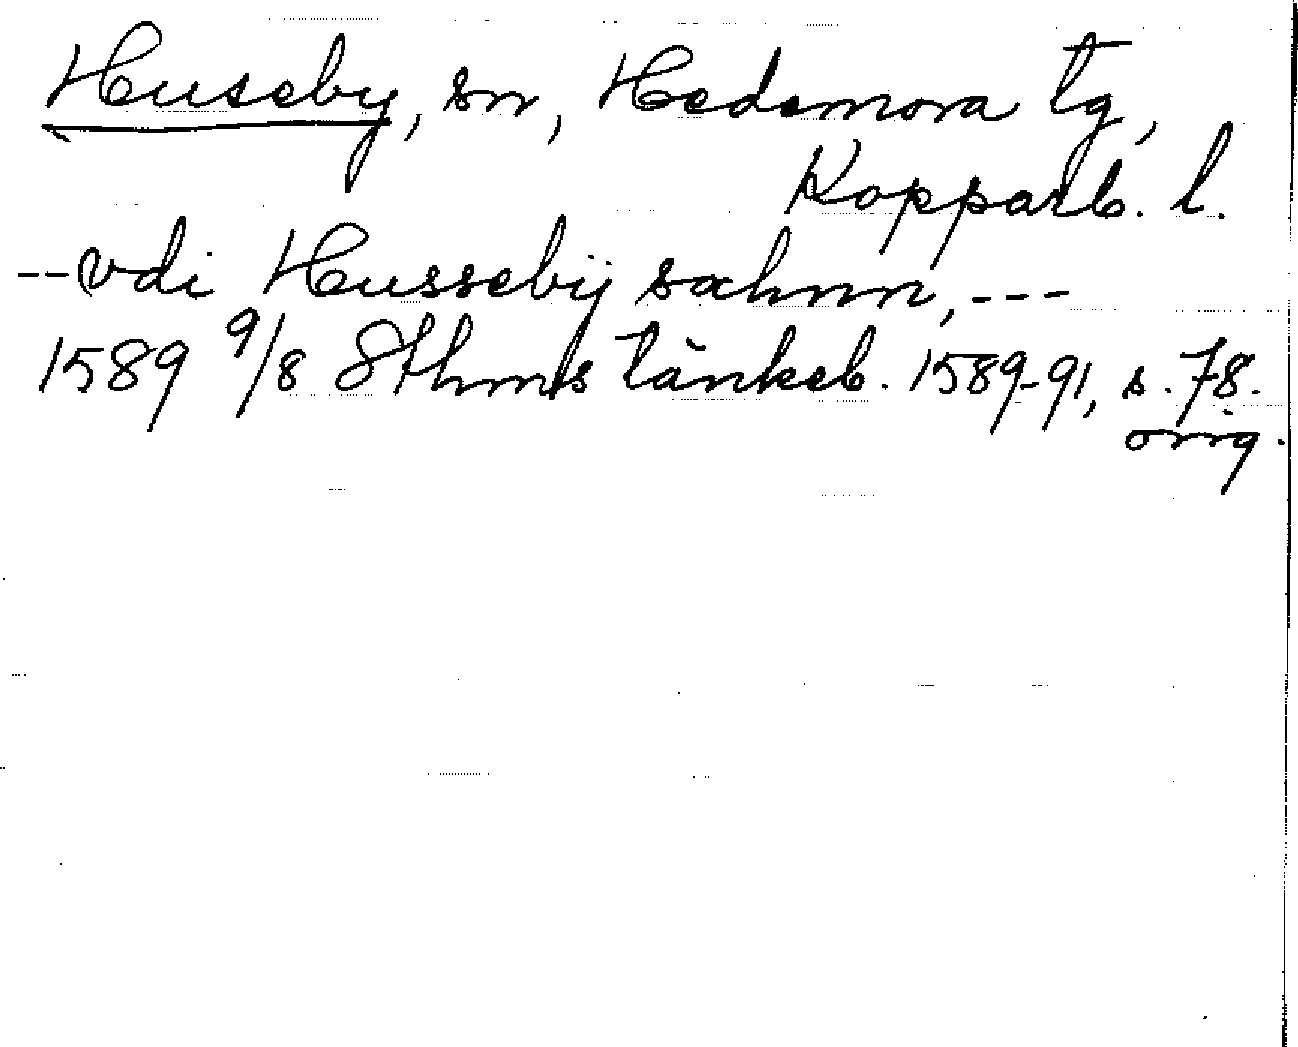 Huseby, sn, Hedemora tg,
Kopparb. l.
-- vdi Hussebÿ sahnn, ---
1589 9/8 Sthms tänkeb. 1589-91, s. 78.
orig.